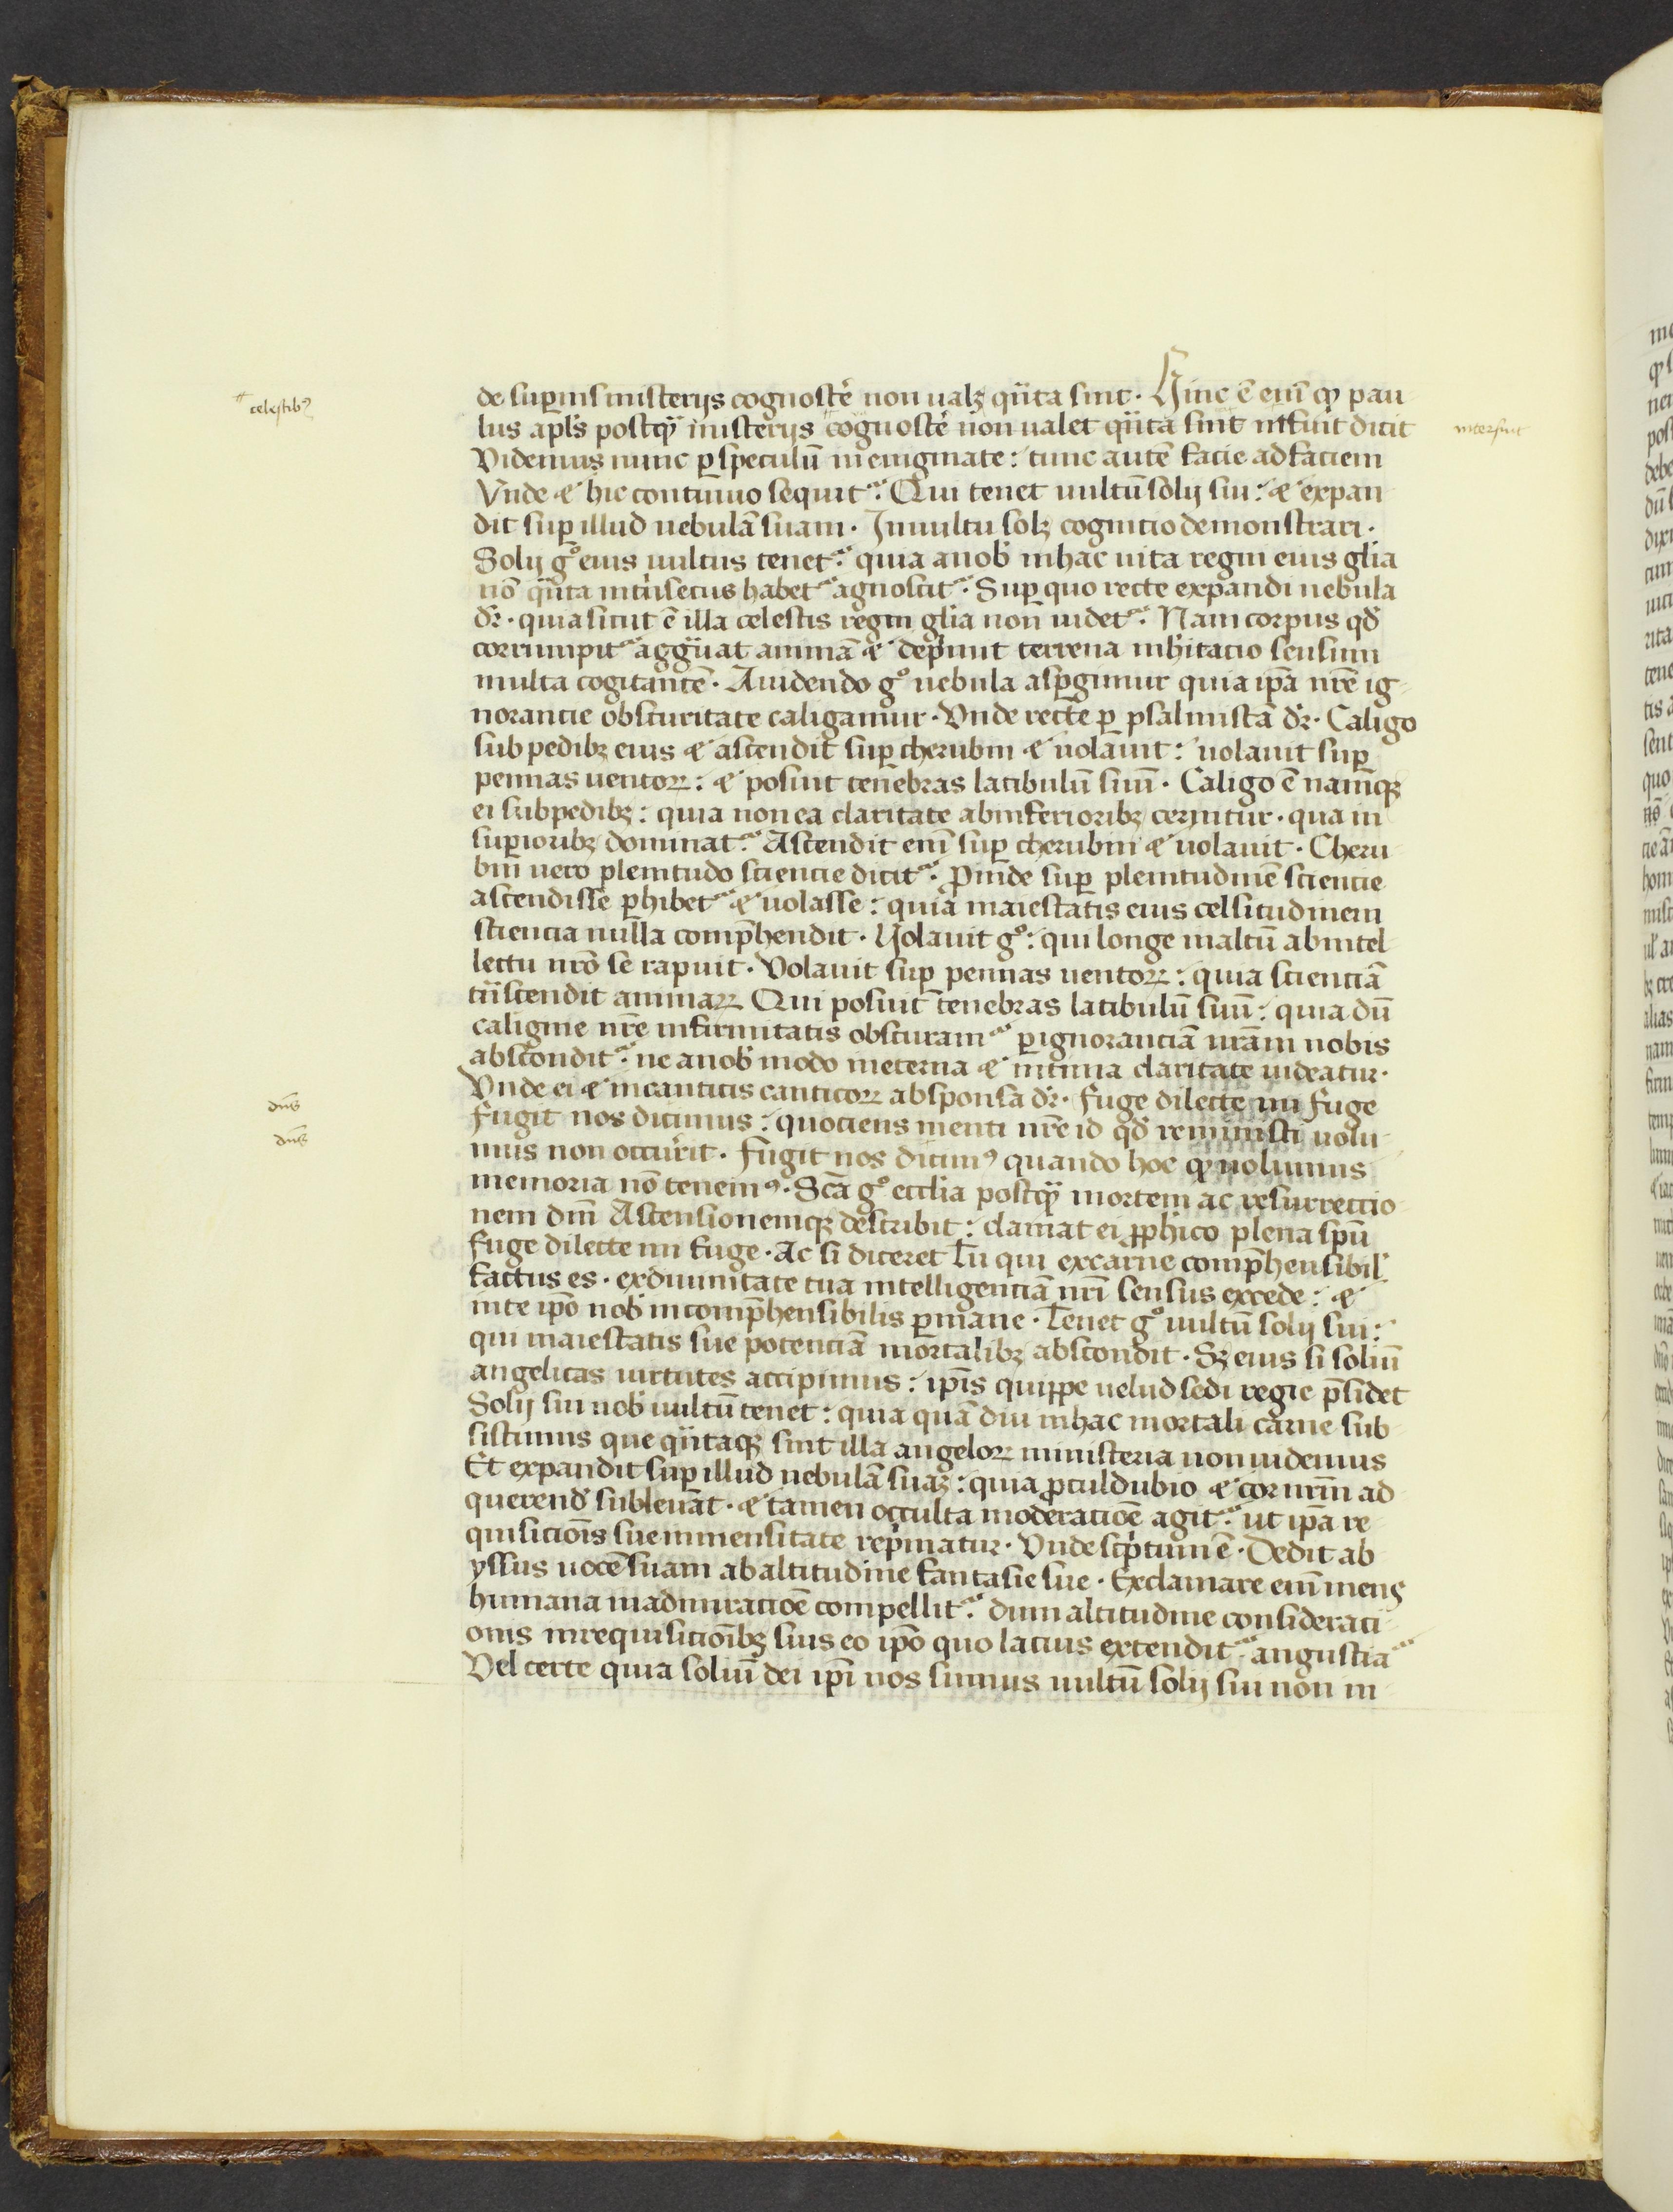 celestibꝰ
de sup̱nis misterijs cognoscẽ non ualꝫ qͣnta sint · Hinc ẽ eni̅ ꝙ pau
lus apl's postqͣꝫ misterijs cognoscẽ non ualet qͣnta sint in̅fuit dicit
interfuit
Videmus nunc ꝑ speculũ in enigmate : tunc autẽ facie ad faciem
Vnde ⁊ hic continuo sequit᷑ : Qui tenet uultũ solij sui : ⁊ expan
dit suꝑ illud nebulã suam · In uultu solꝫ cognitio demonstrari ·
Solij gͦ eius uultus tenet᷑ : quia a nob' in hac uita regni eius gl̃ia
nõ qͣnta intrinsecus habet᷑ agnoscit᷑ · Suꝑ quo recte expandi nebula
dr̃ · quia sicut ẽ illa celestis regni gl̃ia non uidet᷑ · Nam corpus qd̃
corrumpit᷑ aggͣuat animã ⁊ dep̱mit terrena inhitatio sensum
multa cogitantẽ · A uidendo gͦ nebula aspgimur quia ip̃a nr̃e ig
norancie obscuritate caligamur · Vnde recte ꝑ psalmistã dr̃ · Caligo
sub pedibꝫ eius ⁊ ascendit suꝑ cherubin ⁊ uolauit : uolauit suꝑ
pennas uentoꝝ : ⁊ posuit tenebras latibulũ suũ · Caligo ẽ namqꝫ
ei sub pedibꝫ : quia non ea claritate ab inferioribꝫ cernitur · qua in
superioribꝫ dominat᷑ · Ascendit eni̅ suꝑ cherubin ⁊ uolauit · Cheru
bin uero plenitudo sciencie dicit᷑ · Proinde suꝑ plenitudinẽ sciencie
ascendisse ꝑhibet᷑ ⁊ uolasse : quia maiestatis eius celsitudinem
sciencia nulla comp̃hendit · Uolauit gͦ : qui longe in altũ ab intel
lectu nr̃o se rapuit · Volauit suꝑ pennas uentoꝝ : quia scienciã
tͣnscendit animaꝝ Qui posuit tenebras latibulũ suũ : quia dũ
caligine nr̃e infirmitatis obscuram᷑ ꝑ ignoranciã nr̃am nobis
abscondit᷑ : ne a nob' modo in eterna ⁊ intima claritate uideatur ·
Vnde ei ⁊ in canticis canticoꝝ ab sponsa dr̃ · fuge dilecte mi fuge
dn̅s
fugit nos dicimus : quociens menti nr̃e id qd̃ reminisci uolu
dn̅s
mus non occurrit · fugit nos dicimꝰ quando hoc ꝙ uolumus
memoria nõ tenemꝰ · Scã gͦ eccl̃ia postqͣꝫ mortem ac resurrectio
nem dn̅i Ascensionemqꝫ describit : clamat ei ꝓph̃ico plena spũ
fuge dilecte mi fuge · Ac si diceret Tu qui ex carne comp̃hensibil'
factus es · ex diuinitate tua intelligenciã nr̃i sensus excede : ⁊
in te ip̃o nob' incomp̃hensibilis ꝑmane · Tenet gͦ uultũ solij sui :
qui maiestatis sue potenciã mortalibꝫ abscondit · Sꝫ eius si soliũ
angelicas uirtutes accipimus : ip̃is quippe uelud sedi regie p̃sidet
Solij sui nob' uultũ tenet : quia quã diu in hac mortali carne sub
sistimus que qͣntaqꝫ sint illa angeloꝝ ministeria non uidemus
Et expandit suꝑ illud nebulã suaꝫ : quia ꝓculdubio ⁊ cor nr̃m ad
querend' subleuãt · ⁊ tamen occulta moderatiõe agit᷑ : ut ip̃a re
quisiciõis sue inmensitate rep̱matur · Vnde scͥptum ẽ · Dedit ab
yssus uocẽ suam ab altitudine fantasie sue · Exclamare eni̅ mens
humana in admiratiõe compellit᷑ : dum altitudine considerati
onis in requisiciõibꝫ suis eo ip̃o quo lacius extendit᷑ · angustia᷑
Vel certe quia soliũ dei ip̃i nos sumus uultũ solij sui non in